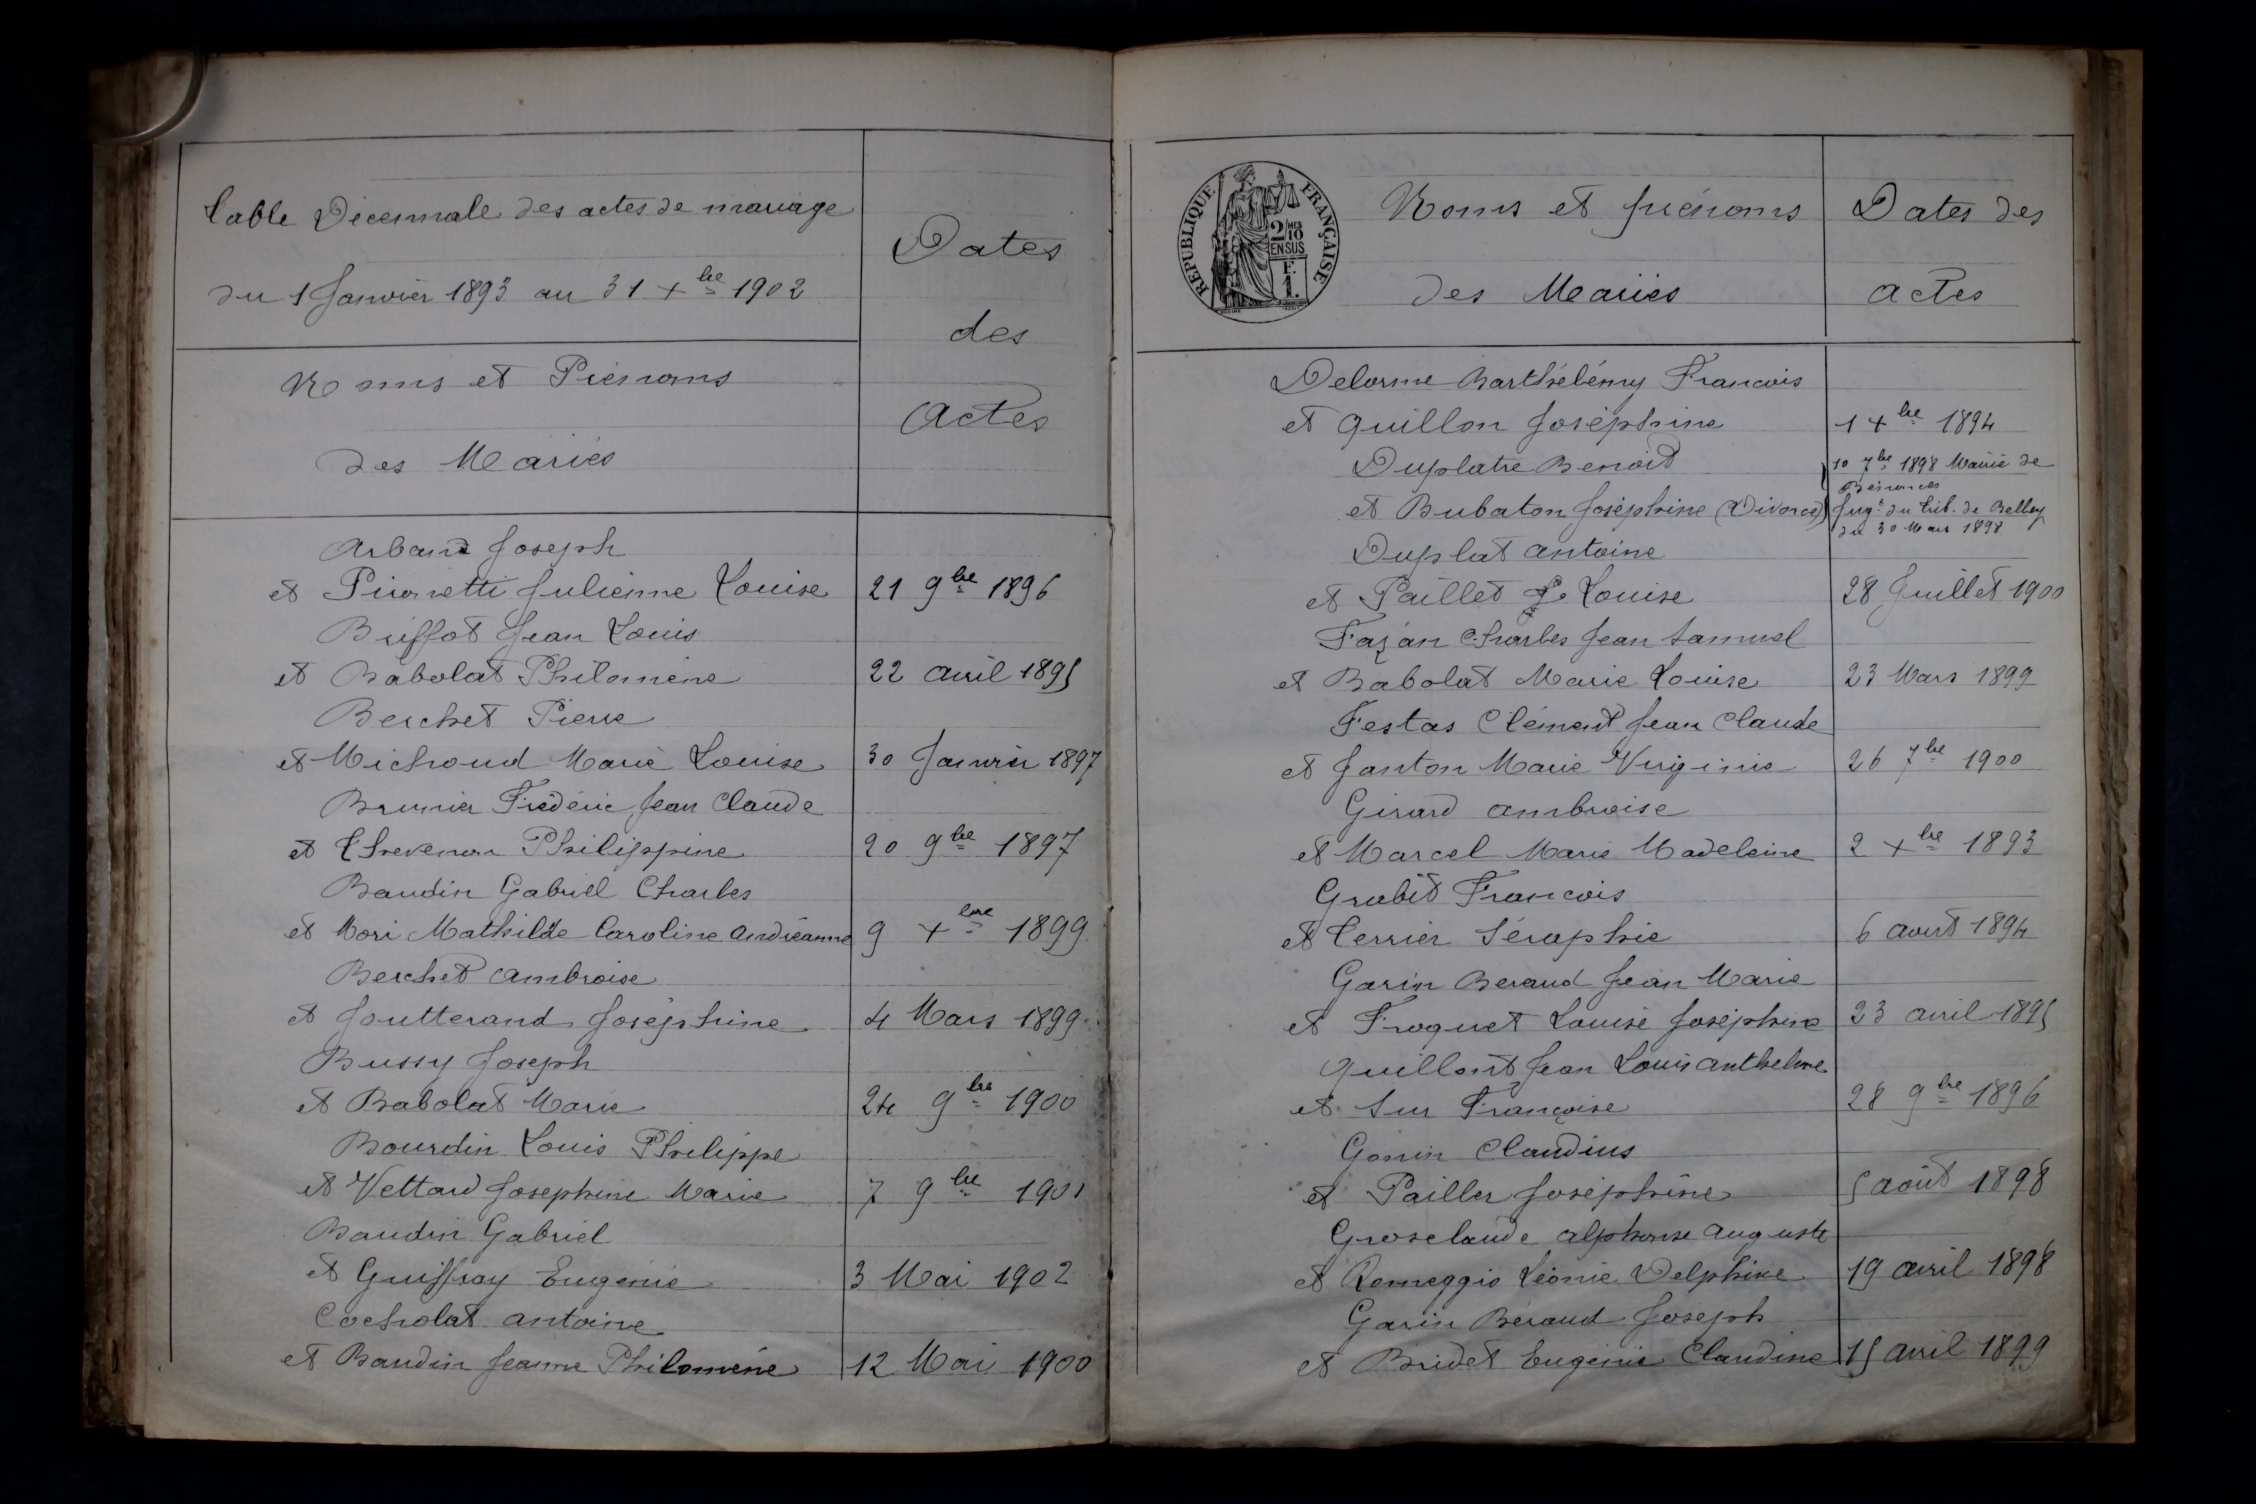 Table Décennale des actes de mariage
du 1 Janvier 1893 au 31 Xbre 1902
Noms et Prénoms
des Mariés
Dates
des
Actes
Arband Joseph
et Pironetti Julienne Louise 21 9bre 1896
Briffot Jean Louis
et Babolat Philomène 22 avril 1895
Berchet Pierre
et Michoud Marie Louise 30 Janvier 1897
Brunier Frédéric Jean Claude
et Thevenon Philippine 20 9bre 1897
Baudin Gabriel Charles
et Mori Mathilde Caroline Andréanne 9 Xbre 1899
Berchet Ambroise
et Joutterand Joséphine 4 Mars 1899
Bussy Joseph
et Babolat Marie 24 9bre 1900
Bourdin Louis Philippe
et Vettard Joséphine Marie 7 9bre 1901
Baudin Gabriel
et Guiffray Eugénie 3 Mai 1902
Cocholat Antoine
et Baudin Jeanne Philomène 12 Mai 1900
RÉPUBLIQUE FRANÇAISE
2/10 MES
EN SUS
F.
1.
Noms et prénoms
des Mariés
Dates des
actes
Delorme Barthélémy Francois
et Guillon Joséphine 1 Xbre 1894
Duplatre Benoit 10 7bre 1898 Mairie de
et Bubaton Joséphine (Divorce) Jugt du trib. de Belley
du 30 Mars 1898
Duplat Antoine
et Paillet Louise 28 Juillet 1900
Fazan Charles Jean Samuel
et Babolat Marie Louise 23 Mars 1899
Festas Clément Jean Claude
et Janton Marie Virginie 26 7bre 1900
Girard Ambroise
et Marcel Marie Madeleine 2 Xbre 1893
Grubit Francois
et Terrier Séraphie 6 aout 1894
Garin Beraud Jean Marie
et Froquet Louise Joséphine 23 avril 1895
Guillont Jean Louis Anthelme
et Sur Françoise 28 9bre 1896
Gonin Claudius
et Pailler Joséphine 5 août 1898
Grosclaude Alphonse Auguste
et Romeggio Léonie Delphine 19 avril 1898
Garin Béraud Joseph
et Bridet Eugénie Claudine 15 avril 1899